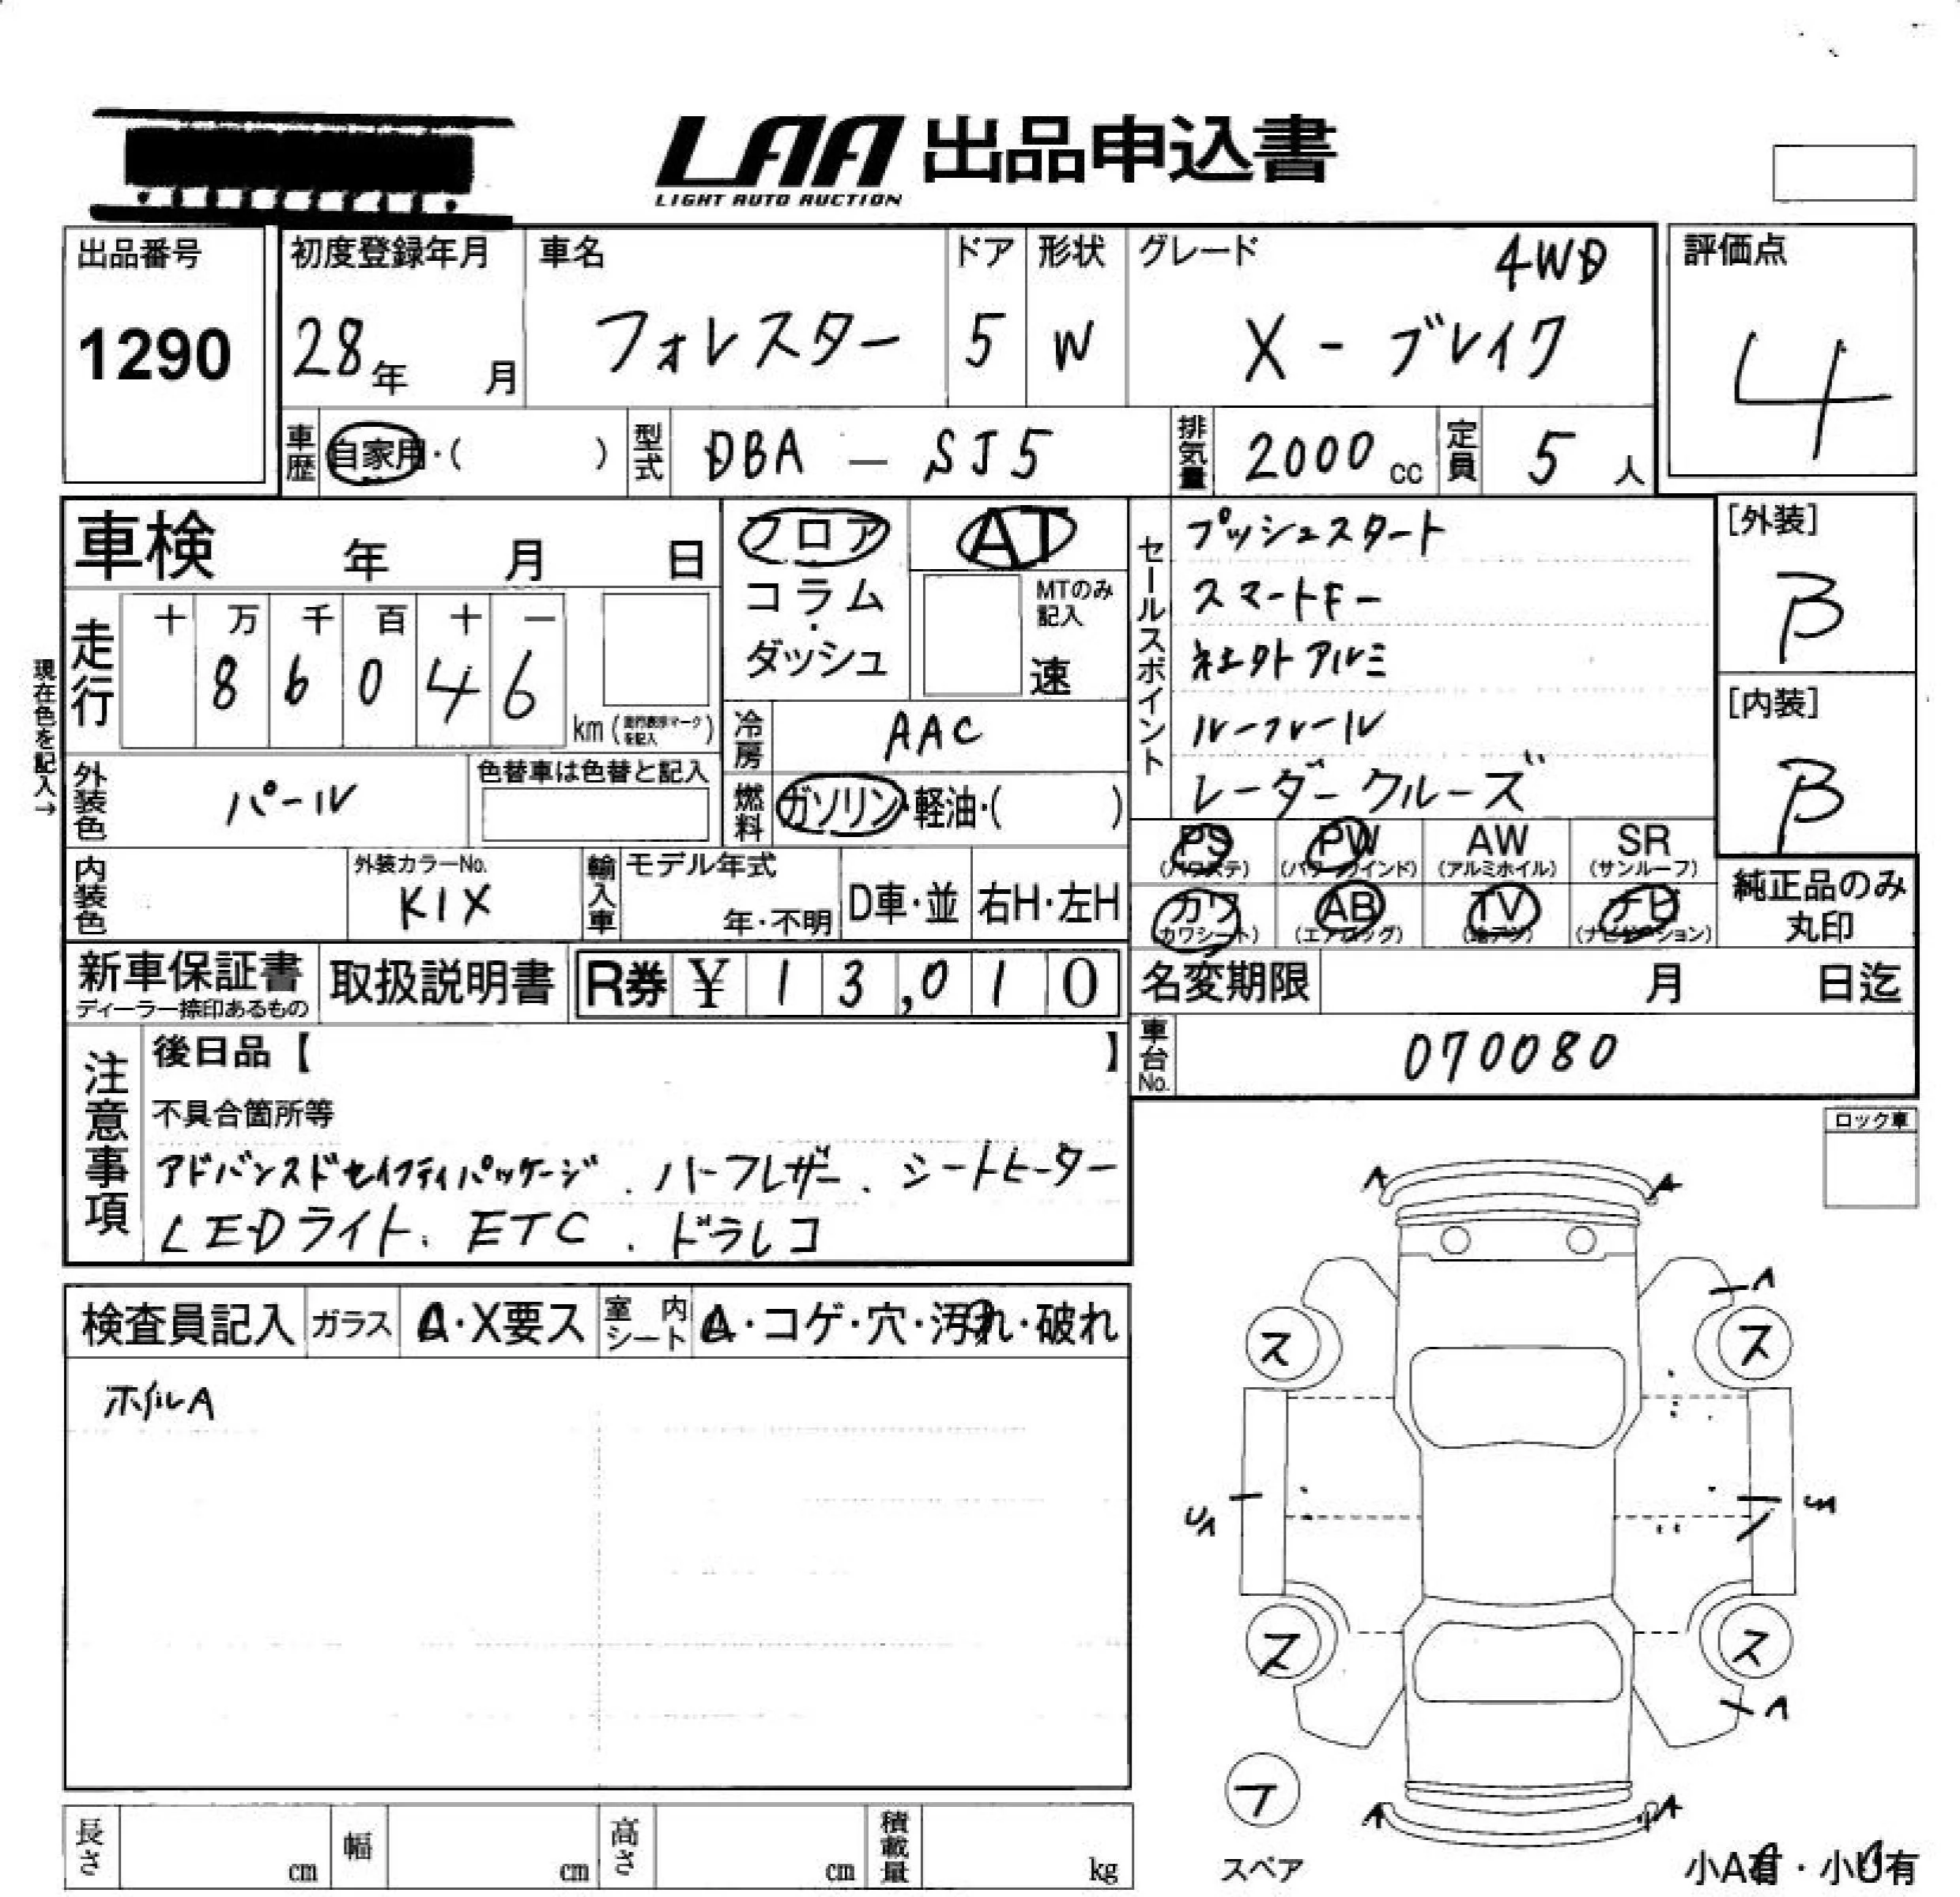 LAA 出品申込書
LIGHT AUTO AUCTION
出品番号
1290
初度登録年月
28年 月
車名
フォレスター
ドア
5
形状
W
グレード
4WD
X - ブレイク
評価点
4
車歴 自家用・( )
型式 DBA — SJ5
排気量 2000 cc
定員 5 人
車検 年 月 日
フロア
コラム・ダッシュ
AT
MTのみ記入
速
セールスポイント
プッシュスタート
スマートキー
社外アルミ
ルーフレール
レーダークルーズ
[外装]
B
[内装]
B
現在色を記入→
走行
十 万 千 百 十 一
8 6 0 4 6
km (走行表示マークを記入)
冷房 AAC
外装色 パール
色替車は色替と記入
燃料 ガソリン・軽油・( )
PS (パワステ)
PW (パワーウインド)
AW (アルミホイル)
SR (サンルーフ)
カワ (カワシート)
AB (エアバッグ)
TV
ナビ (ナビゲーション)
純正品のみ丸印
内装色
外装カラーNo.
K1X
輸入車
モデル年式
年・不明
D車・並
右H・左H
新車保証書
ディーラー捺印あるもの
取扱説明書
R券 ¥ 13,010
名変期限 月 日迄
車台No. 070080
注意事項
後日品【 】
不具合箇所等
アドバンスドセイフティパッケージ . ハーフレザー . シートヒーター
LEDライト . ETC . ドラレコ
ロック車
検査員記入
ガラス A・X要ス
室内シート A・コゲ・穴・汚れ・破れ
ホイルA
A A
A
ス ス
UA
ス ス
A
A A
スペア
小A有・小U有
長さ cm
幅 cm
高さ cm
積載量 kg